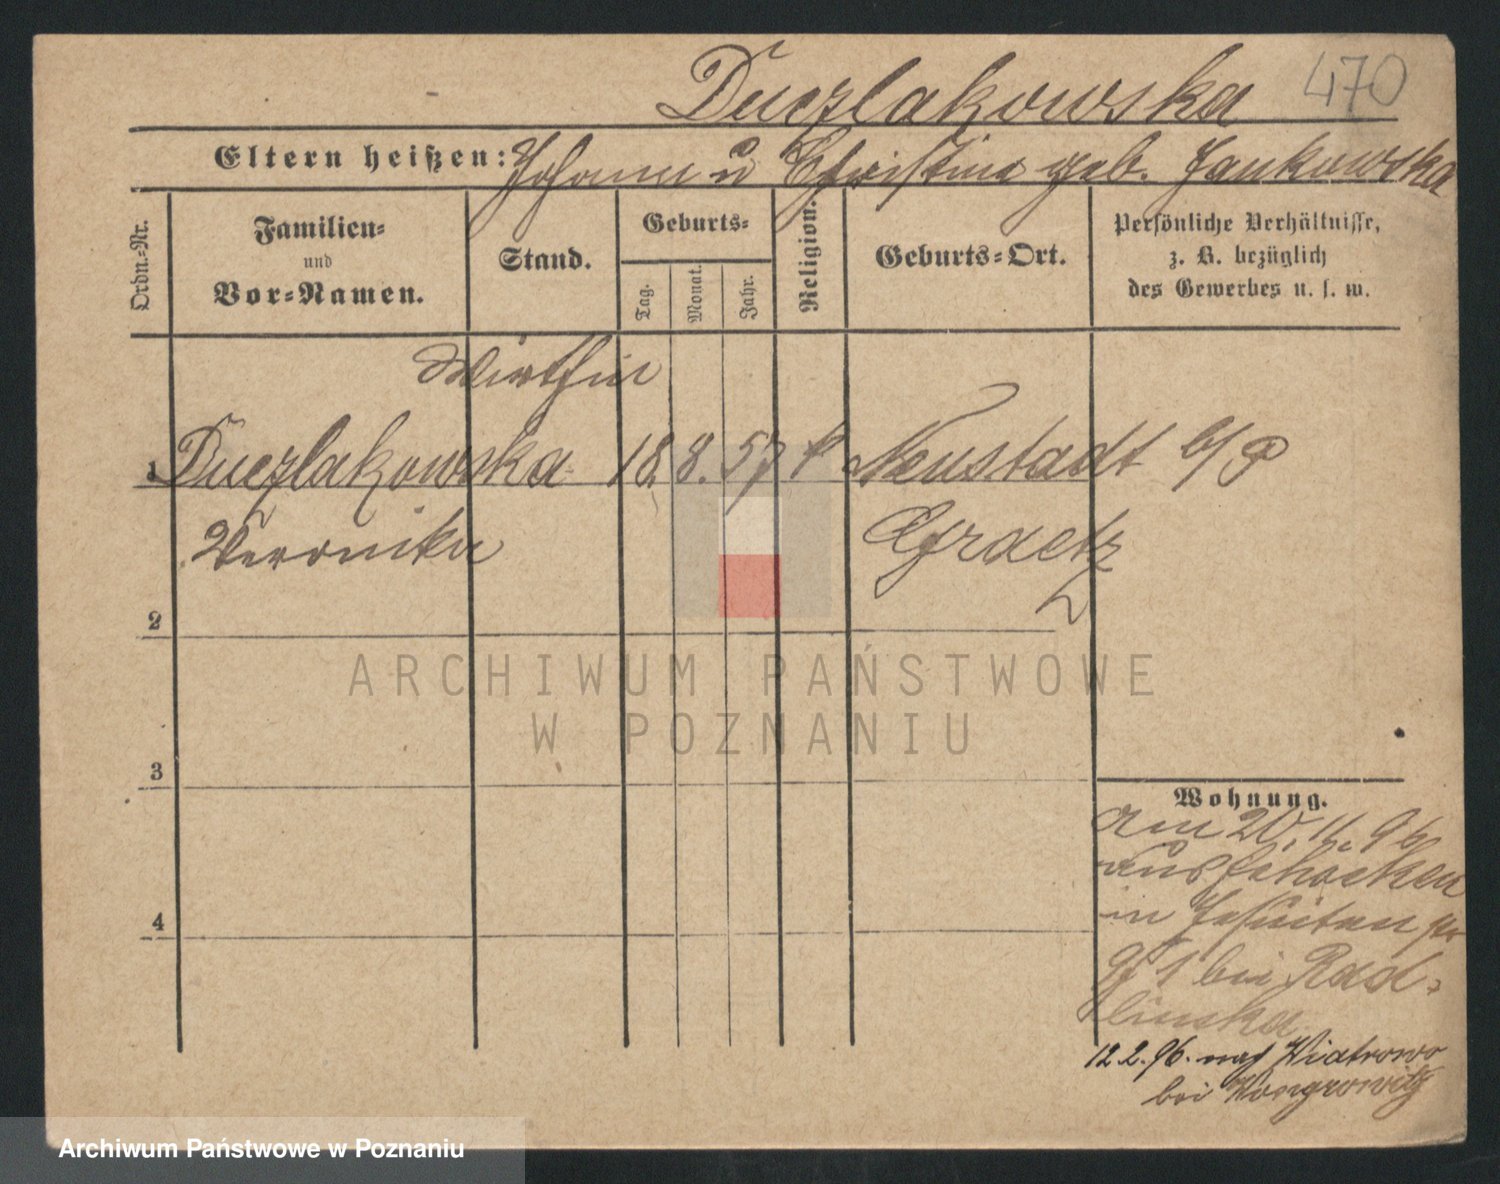 Duczlakowska 470
Eltern heißen: Johann u Christine geb. Jankowska
Ordn.-Nr.
Familien-
und
Vor-Namen.
Stand.
Geburts-
Tag.
Monat.
Jahr.
Religion.
Geburts-Ort.
Persönliche Verhältnisse,
z. B. bezüglich
des Gewerbes u. s. w.
Wirthin
1 Duczlakowska 18. 8. 57 k Neustadt b/P
Veronika Graetz
2
ARCHIWUM PAŃSTWOWE
W POZNANIU
3
Wohnung.
am 20. 11. 96
aus
in Jesuiten
1 bei Rad-
linska
4
12.2.96. nach Wiatrowo
bei Wongrowitz
Archiwum Państwowe w Poznaniu